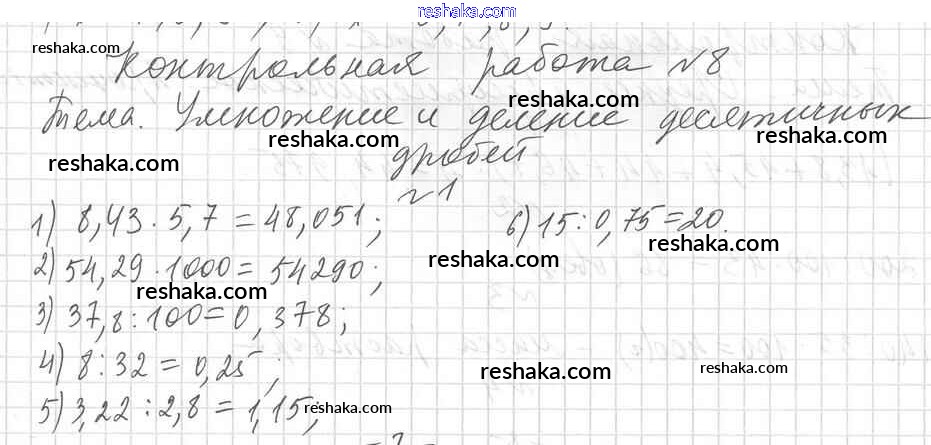 reshaka.com
reshaka.com
Контрольная работа №8
reshaka.com
Тема. Умножение и деление десятичных
reshaka.com reshaka.com reshaka.com
дробей
№1
1) 8,43 · 5,7 = 48,051; 6) 15 : 0,75 = 20.
reshaka.com
reshaka.com
2) 54,29 · 1000 = 54290;
reshaka.com
3) 37,8 : 100 = 0,378;
4) 8 : 32 = 0,25;
reshaka.com
5) 3,22 : 2,8 = 1,15;
reshaka.com